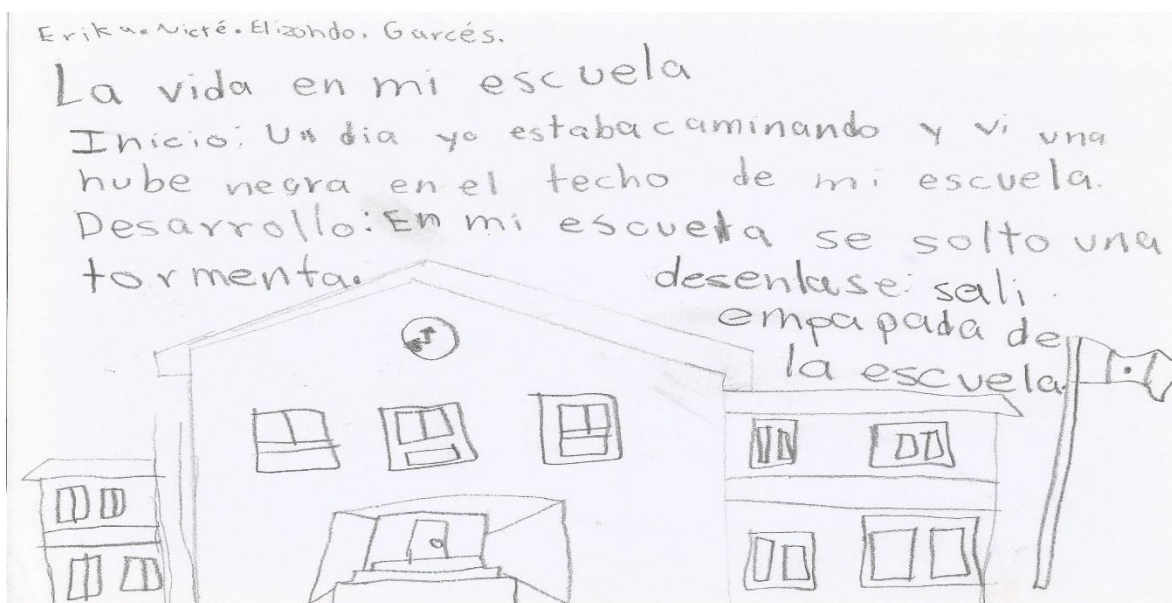 Erika. Nicté. Elizondo. Garcés.
La vida en mi escuela
Inicio: Un dia yo estaba caminando y vi una
nube negra en el techo de mi escuela.
Desarrollo: En mi escuela se solto una
tormenta.
desenlase: sali
empapada de
la escuela.